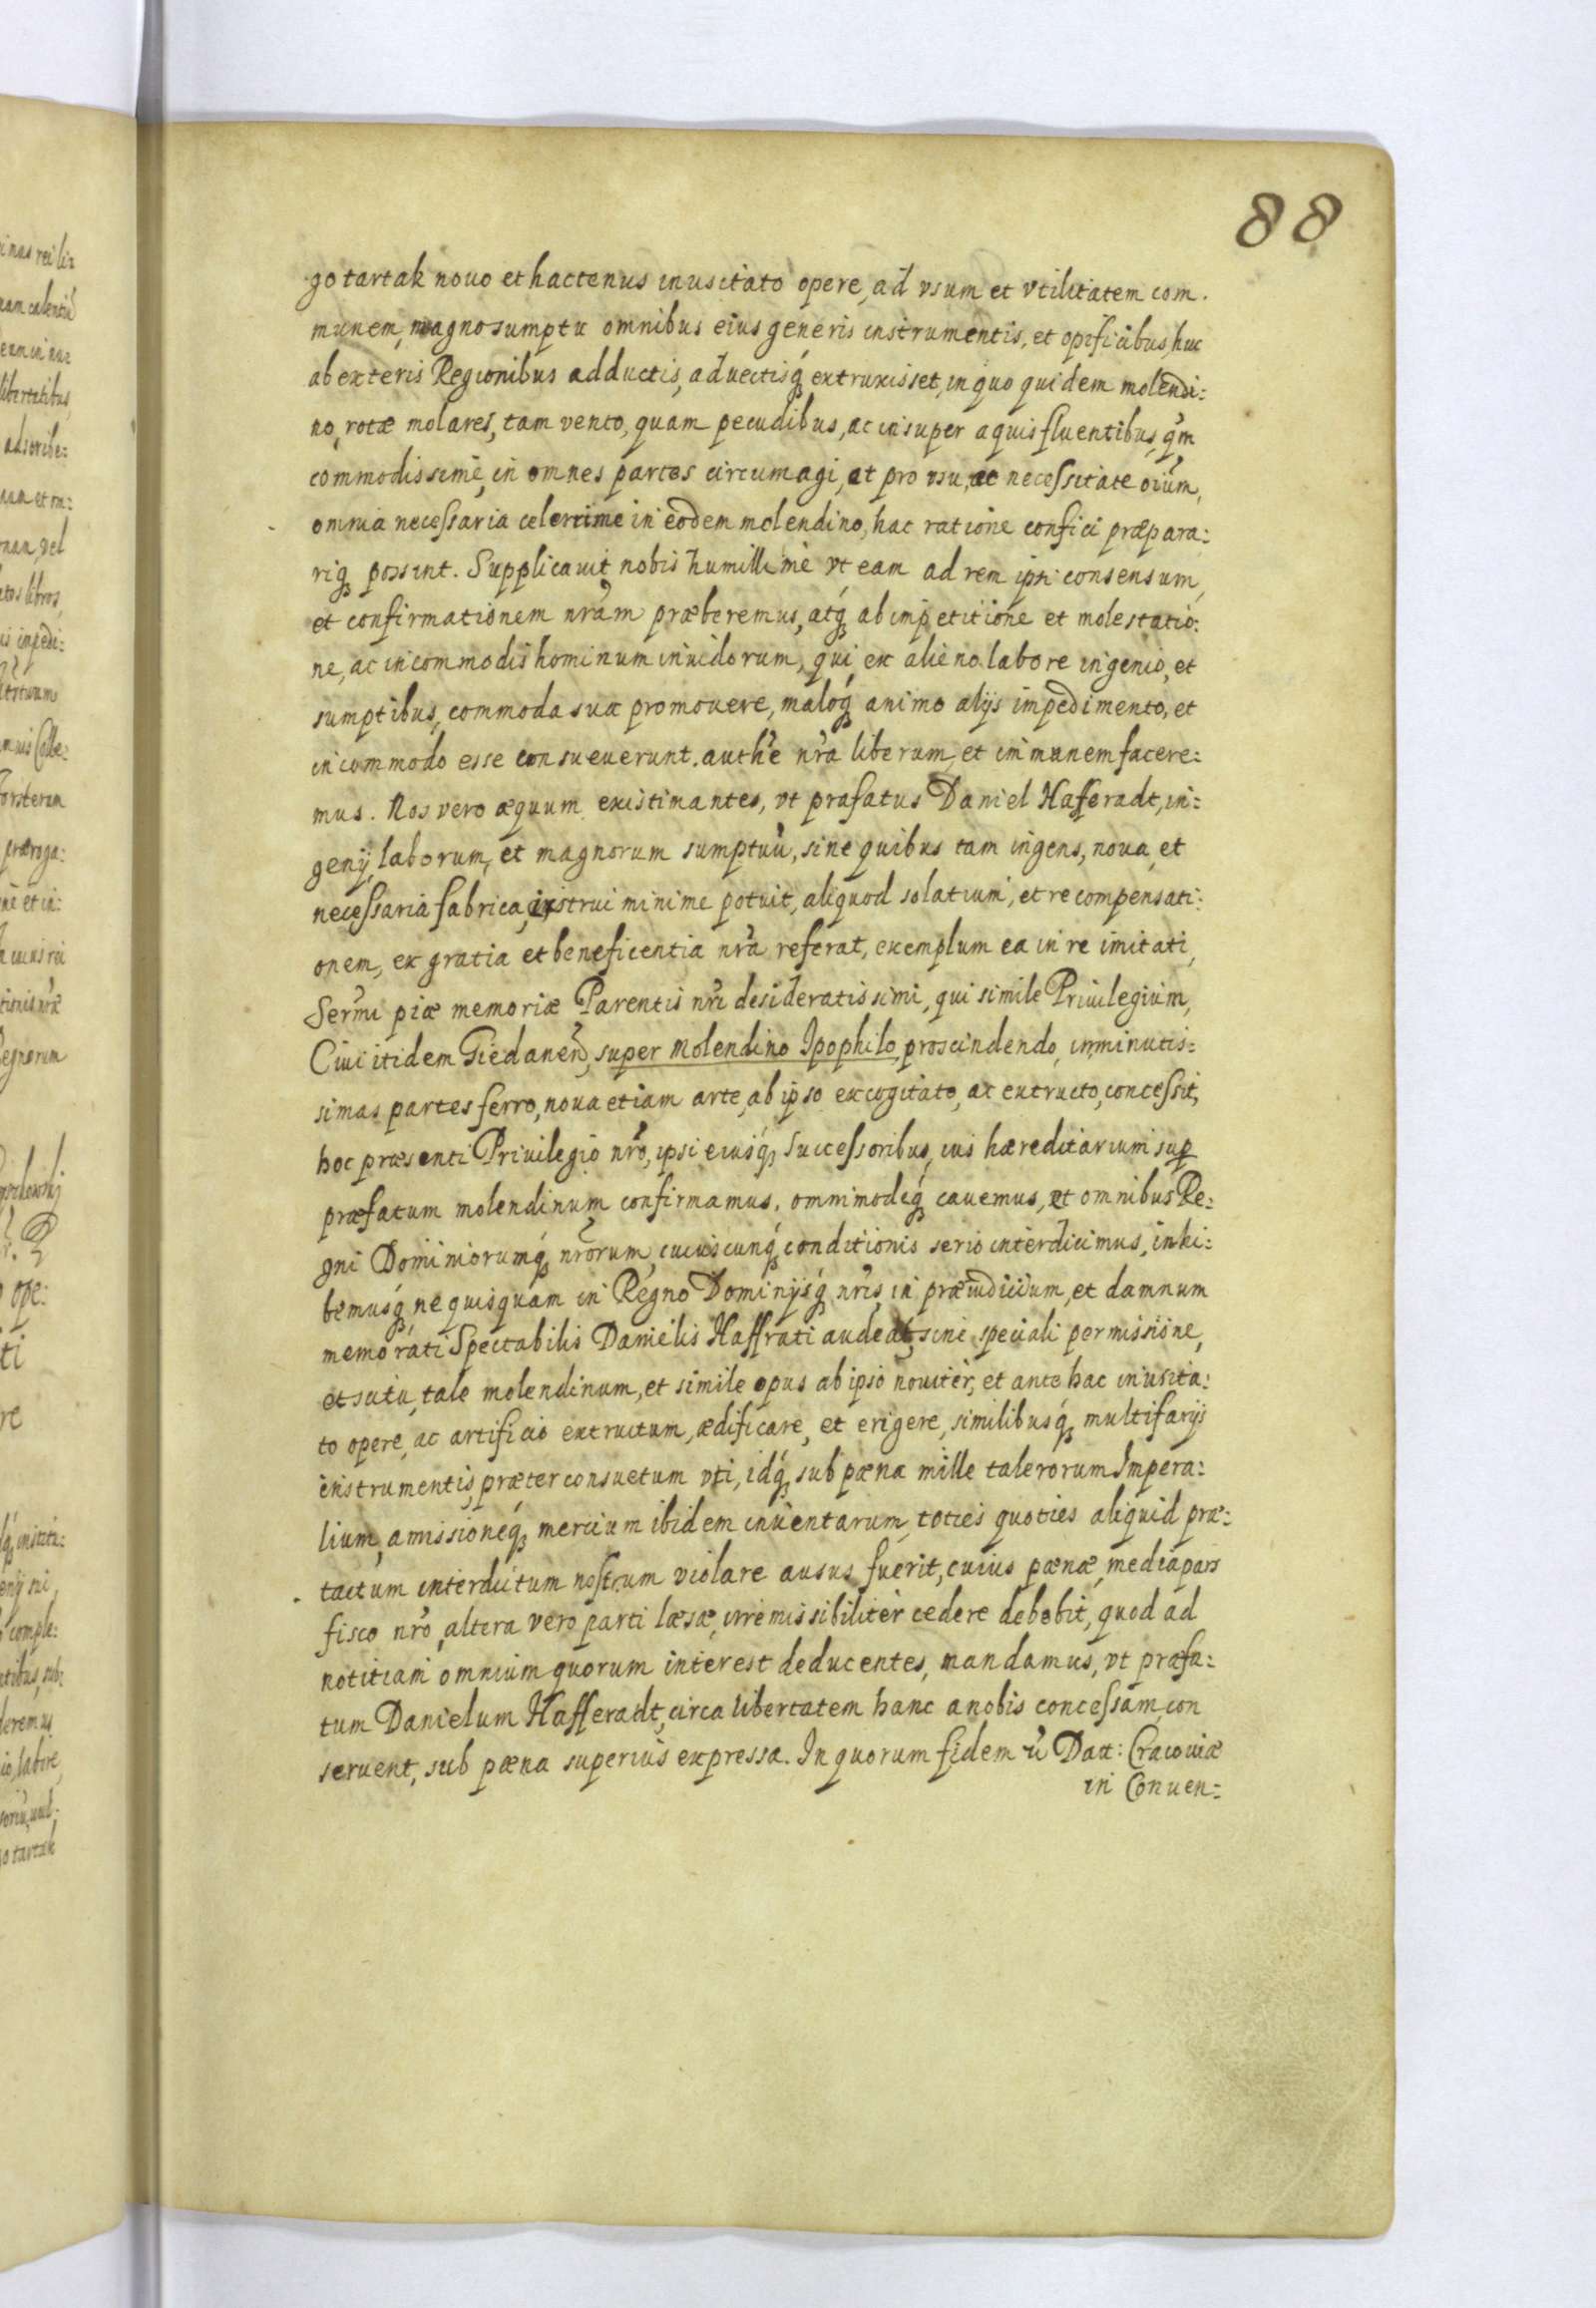 88
go tartak nouo et hactenus inusitato opere, ad vsum et vtilitatem com.
munem, magno sumptu omnibus eius generis instrumentis, et opificibus huc
ab exteris Regionibus adductis, aduectisq́ꝫ extruxisset, in quo quidem molendi:
no, rotæ molares, tam vento, quam pecudibus, ac insuper aquis fluentibus, q̃m
commodissimè, in omnes partes circumagi, et pro vsu, ac necessitate oiũm,
omnia necessaria celerrime in eodem molendino, hac ratione confici præpara:
riqꝫ possint. Supplicauit nobis humillimè vt eam ad rem ipsi consensum,
et confirmationem nr̃am præberemus, atq́ꝫ ab impetitione et molestatio:
ne, ac incommodis hominum inuidorum, qui ex alieno labore ingenio, et
sumptibus, commoda sua promouere, maloq́ꝫ animo alijs impedimento, et
incommodo esse consueuerunt. auth̃e nr̃a liberum, et immunem facere:
mus. Nos vero æquum existimantes, vt præfatus Daniel Hafferadt, in:
genij, laborum, et magnorum sumptuũ, sine quibus tam ingens, noua, et
necessaria fabrica, exstrui minime potuit, aliquod solatium, et recompensati:
onem, ex gratia et beneficentia nr̃a referat, exemplum ea in re imitati,
Serm̃i piæ memoriæ Parentis nr̃i desideratissimi, qui simile Priuilegium,
Ciui itidem Giedaneñ, super molendino Ipophilo, proscindendo, in minutis:
simas partes ferro, noua etiam arte, ab ipso excogitato, ac extructo, concessit,
hoc præsenti Priuilegio nr̃o, ipsi eiusq́ꝫ Successoribus, ius hæreditarium sup
præfatum molendinum confirmamus, ommimodeq́ꝫ cauemus, et omnibus Re:
gni Dominiorumq́ꝫ nr̃orum, cuiuscunq́ꝫ conditionis serio interdicimus, inhi:
bemusq́ꝫ ne quisquam in Regno Dominijsq́ꝫ nr̃is, in præiudicium, et damnum
memorati Spectabilis Danielis Haffrati audeat, sine speciali permissione,
et scitu, tale molendinum, et simile opus ab ipso nouiter, et ante hac inusita:
to opere, ac artificio extructum, ædificare, et erigere, similibusq́ꝫ multifarijs
instrumentis, præter consuetum vti, idq́ꝫ sub pæna mille talerorum Impera:
lium, amissioneq́ꝫ mercium ibidem inuentarum, toties quoties aliquid præ:
tactum interdictum nostrum violare ausus fuerit, cuius pænæ, media pars
fisco nr̃o, altera vero parti læsæ, irremissibiliter cedere debebit, quod ad
notitiam omnium quorum interest deducentes, mandamus, vt præfa:
tum Danielum Hafferadt, circa libertatem hanc a nobis concessam, con
seruent, sub pæna superius expressa. In quorum fidem Dat: Cracouiæ
in Conuen: